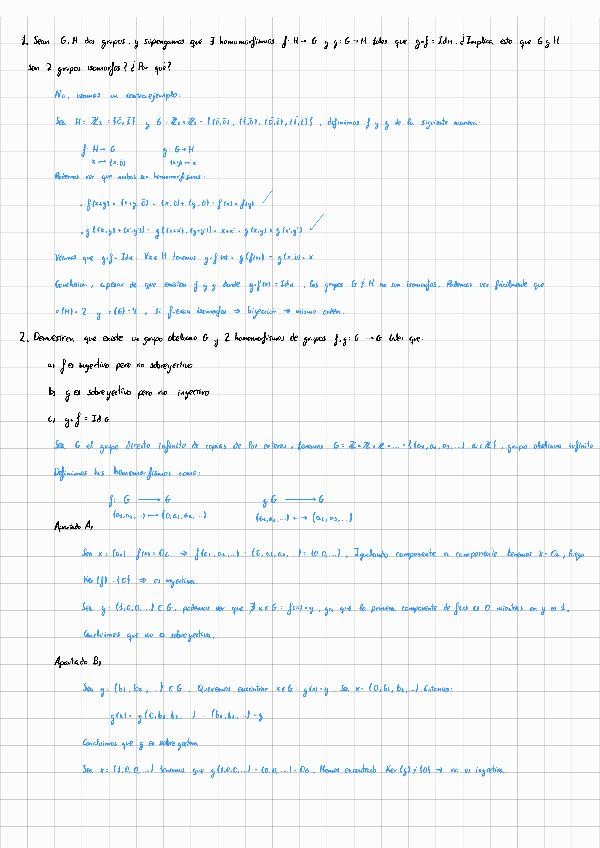 1. Sean G, H dos grupos y supongamos que ∃ homomorfismos f: H → G y g: G → H tales que g∘f = Id_H. ¿Implica esto que G y H
son 2 grupos isomorfos? ¿Por qué?
No, veamos un contraejemplo:
Sea H = ℤ₂ = {0̄, 1̄} y G = ℤ₂×ℤ₂ = {(0̄,0̄), (1̄,0̄), (0̄,1̄), (1̄,1̄)}, definimos f y g de la siguiente manera:
f: H → G g: G → H
x ↦ (x,0) (x,y) ↦ x
Podemos ver que ambos son homomorfismos:
· f(x+y) = (x+y, 0̄) = (x,0) + (y,0) = f(x) + f(y) ✓
· g((x,y)+(x',y')) = g((x+x'), (y+y')) = x+x' = g(x,y) + g(x',y') ✓
Veamos que g∘f = Id_H ∀x∈H tenemos g∘f(x) = g(f(x)) = g(x,0) = x
Conclusion, a pesar de que existen f y g donde g∘f(x) = Id_H, los grupos G y H no son isomorfos. Podemos ver fácilmente que
o(H) = 2 y o(G) = 4, si fueran isomorfos ⇒ biyección ⇒ mismo orden.
2. Demuestren que existe un grupo abeliano G y 2 homomorfismos de grupos f, g: G → G tales que:
a) f es inyectivo pero no sobreyectivo
b) g es sobreyectivo pero no inyectivo
c) g∘f = Id_G
Sea G el grupo directo infinito de copias de los enteros, tenemos G = ℤ×ℤ×ℤ×... = {(a₁,a₂,a₃,...) aᵢ∈ℤ}, grupo abeliano infinito
Definimos los homomorfismos como:
f: G → G g: G → G
(a₁,a₂,a₃,...) ↦ (0,a₁,a₂,...) (a₁,a₂,...) ↦ (a₂,a₃,...)
Apartado A,
Sea x = (aₙ) : f(x) = 0_G ⇒ f(a₁,a₂,...) = (0,a₁,a₂,...) = (0,0,...), Igualando componente a componente tenemos x = 0_G, luego
Ker(f) = {0} ⇒ es inyectiva.
Sea y = (1,0,0,...) ∈ G, podemos ver que ∄ x∈G : f(x) = y, ya que la primera componente de f(x) es 0 mientras en y es 1.
Concluimos que no es sobreyectiva.
Apartado B,
Sea y = (b₁,b₂,...) ∈ G. Queremos encontrar x∈G g(x) = y. Sea x = (0,b₁,b₂,...). Entonces:
g(x) = g(0,b₁,b₂,...) = (b₁,b₂,...) = y
Concluimos que g es sobreyectiva
Sea x = (1,0,0,...) tenemos que g(1,0,0,...) = (0,0,...) = 0_G. Hemos encontrado Ker(g) ≠ {0} ⇒ no es inyectiva.